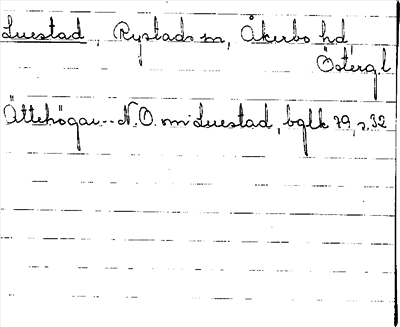 Luestad, Rystads sn, Åkerbo hd
Östergl
Ättehögar... N.O. om Luestad, bglk 79, s. 32